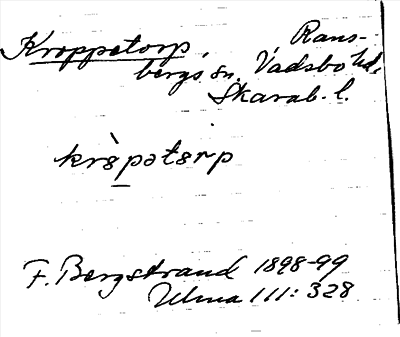 Kroppetorp, Rans-
bergs sn, Vadsbo hd,
Skarab. l.
krɔ̀pətɔrp
F. Bergstrand 1898-99
Ulma 111: 328